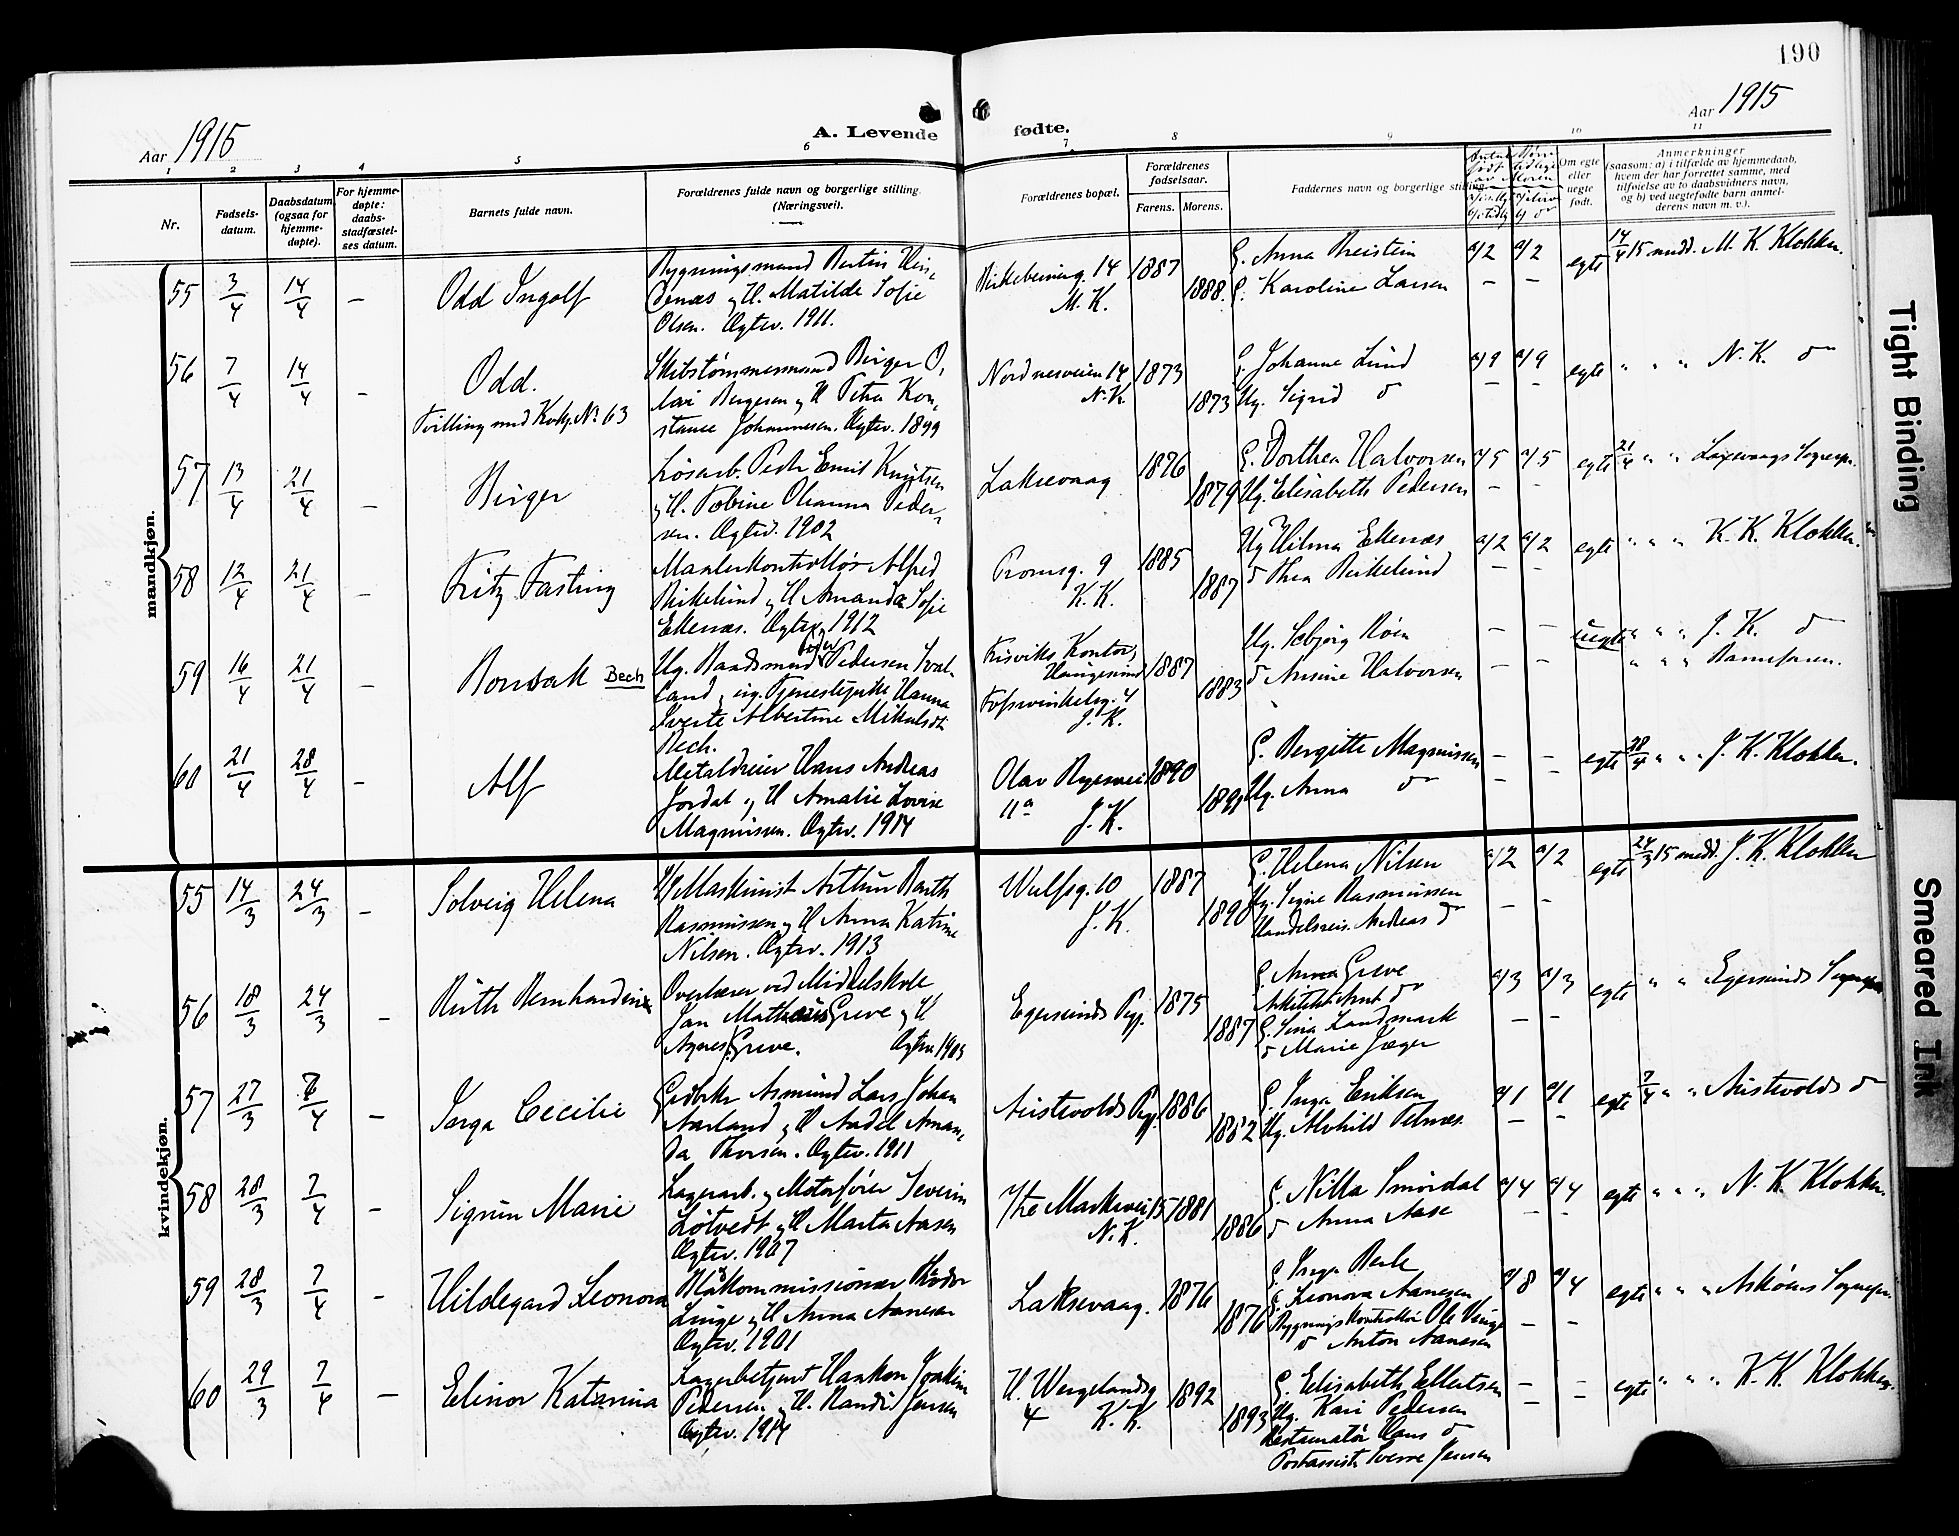 190
Aar 1915
A. Levende
fødte.
Aar 1915
1 2 3 4 5 6 7 8 9 10 11
Nr.
Fødsels-
datum.
Daabsdatum
(ogsaa for
hjemme-
døpte).
For hjemme-
døpte:
daabs-
stadfæstel-
ses datum.
Barnets fulde navn.
Forældrenes fulde navn og borgerlige stilling
(Næringsvei).
Forældrenes bopæl.
Forældrenes
fødselsaar.
Farens. Morens.
Faddernes navn og borgerlige stilling
Om egte
eller
uegte
født.
Anmerkninger
(saasom: a) i tilfælde av hjemmedaab,
hvem der har forrettet samme, med
tilføielse av to daabsvidners navn,
og b) ved uegtefødte barn anmel-
derens navn m. v.).
mandkjøn.
55 3/4 14/4 – Odd Ingolf
Bygningsmand Bertin Hin-
denæs og H. Matilde Sofie
Olsen. Egtev. 1911.
Birkebeinerg. 14
M. K.
1887
1888
G. Anna Breistein
G. Karoline Larsen
a/2 a/2
– –
egte
14/4 15 medd. M. K. Klokker.
56 7/4 14/4 – Odd.
Tvilling med Kvkj. No 63
Skibstømmermand Birger O-
lai Bergesen og H Petra Kon-
stance Johannesen. Egtev. 1899
Nordnesveien 14
N. K.
1873
1873
G. Johanne Lund
Ug. Sigrid do
a/9 a/9
– –
egte
" " " N. K. do
57 13/4 21/4 – Birger
Løsarb. Peder Emil Knutsen
og H. Tobine Oleanna Peder-
sen. Egtev. 1902
Laksevaag
1876
1879
G. Dorthea Halvorsen
Ug. Elisabeth Pedersen
a/5 a/5
– –
egte
21/4 " " Laxevaags Sognepr.
58 12/4 21/4 – Fritz Fasting
Maalerkontrollør Alfred
Birkelund og H Amanda Sofie
Ellenæs. Egtev. 1912
Promsg. 9
K. K.
1885
1887
Ug Hilma Ellenæs
do Thea Birkelund
a/2 a/2
– –
egte
" " " K. K. Klokker.
59 16/4 21/4 – Bonsak Bech
Ug. Baadsmand Peder Pedersen Sval-
land og ug. Tjenestepike Hanna
Sverte Albertine Mikalsdt
Bech.
Risviks Kontor,
Haugesund
Fossvinkelsg. 4
J. K.
1887
1883
Ug. Solbjørg Røen
do Ansine Halvorsen
– –
– –
uegte
" " " J. K. do
" " " Barnefaren.
60 21/4 28/4 – Alf
Metaldreier Hans Andreas
Jordal og H Amalie Lovise
Magnussen. Egtev. 1914
Olav Ryesvei
11a J. K.
1890
1891
G. Bergitte Magnussen
Ug. Anna do
– –
– –
egte
28/4 " " J. K. Klokker.
kvindekjøn.
55 14/3 24/3 – Solveig Helena
Maskinist Arthur Barth
Rasmussen og H Anna Katrine
Nilsen. Egtev. 1913
Wulfsg. 10
J. K.
1887
1890
G. Helena Nilsen
Ug. Signe Rasmussen
Handelsreis. Andreas do
a/2 a/2
– –
egte
24/3 15 medd. J. K. Klokker
56 18/3 24/3 – Ruth Bernhardine
Overlærer ved Middelskole
Jan Mathæus Greve og H
Agnes Greve. Egtev 1909
Egersunds Pgj.
1875
1887
G. Anna Greve
Arkitekt Arnt do
G. Sina Landmark
do Marie Jæger
a/3 a/3
– –
egte
" " Egersunds Sognepr
57 27/3 7/4 – Inga Cecilie
Gårdbr. Asmund Lars Johan
Aarland og H Aadel Aman-
da Thorsen. Egtev. 1911
Austevolds Pgj.
1886
1882
G. Inga Eriksen
Ug. Alvhild Telnæs
a/1 a/1
– –
egte
7/4 " " Austevolds do
58 28/3 7/4 – Sigrun Marie
Lagerarb. og Motorfører Severin
Løtvedt og H Marta Aasen
Egtev. 1907
Ytre Markevei 15
N. K.
1881
1886
G. Nilla Smørdal
do Anna Aase
a/4 a/4
– –
egte
" " " N. K. Klokker.
59 28/3 7/4 – Hildegard Leonora
Linge og H Anna Aanesen
Egtev. 1901
Laksevaag.
1876
1876
G. Inga Berle
G. Leonora Aanesen
Bygningskontrollør Ole Linge
do Anton Aanesen
a/8 a/4
– –
egte
" " " Askøens Sognepr.
60 29/3 7/4 – Elinor Katarina
Lagerbetjent Haakon Joakim
Pedersen og H. Randi Jensen
Egtev. 1914
H. Wergelandsg
4 K. K.
1892
1893
G. Elisabeth Ellertsen
Ug. Kari Pedersen
Restauratør Hans do
Postassist. Sverre Jensen
– –
– –
egte
" " " K. K. Klokker.
Tight Binding
Smeared Ink